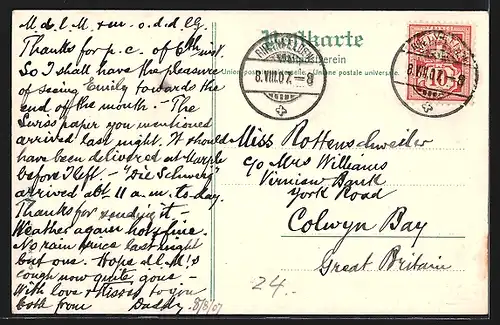 Thanks for p.c. of 6th inst.
So I shall have the pleasure
of seeing Emily towards the
end of the month. - The
Swiss paper you mentioned
arrived last night. It should
have been delivered at Marple
before I left. - "Die Schweiz"
arrived abt 11 a.m. to-day.
Thanks for sending it -
Weather again hot & fine.
No rain since last night
but one. Hope dl M's
cough now quite gone -
With love & kisses to you
both from Daddy 8/8/07
Postkarte
Weltpostverein
Union postale universelle. Union postale universelle.
RHEINFELDEN
8.VIII.07.-8
RHEINFELDEN
8.VIII.07.-8
Miss Rottenschweiler
c/o Mrs Williams
Bank
York Road
Colwyn Bay
Great Britain
24.-